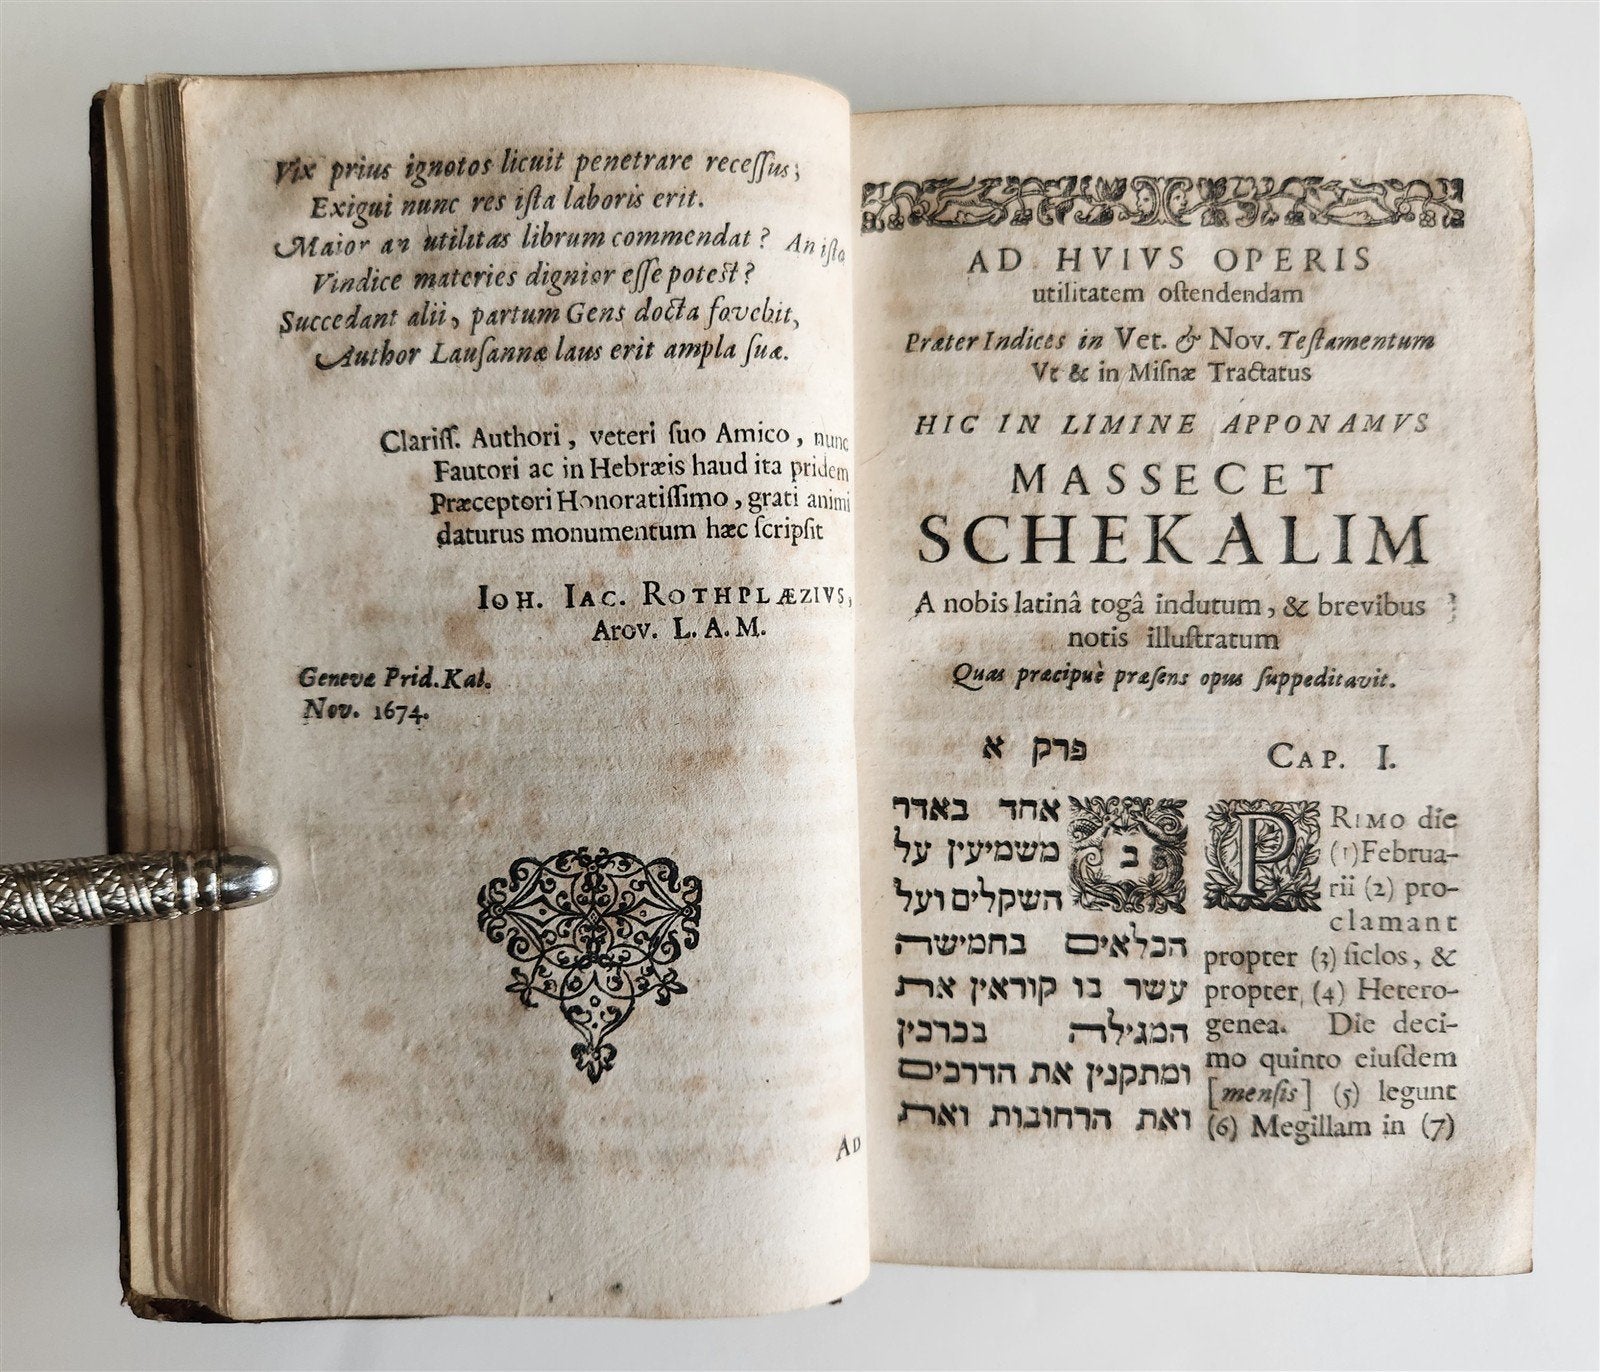 Vix prius ignotos licuit penetrare recessus;
Exigui nunc res iſta laboris erit.
Maior an utilitas librum commendat? An iſta
Vindice materies dignior eſſe poteſt?
Succedant alii, partum Gens docta fovebit,
Author Lauſannæ laus erit ampla ſuæ.
Clariſſ. Authori, veteri ſuo Amico, nunc
Fautori ac in Hebræis haud ita pridem
Præceptori Honoratiſſimo, grati animi
daturus monumentum hæc ſcripſit
IOH. IAC. ROTHPLÆZIVS,
Arov. L. A. M.
Genevæ Prid. Kal.
Nov. 1674.
AD
AD HVIVS OPERIS
utilitatem oſtendendam
Præter Indices in Vet. & Nov. Teſtamentum
Vt & in Miſnæ Tractatus
HIC IN LIMINE APPONAMVS
MASSECET
SCHEKALIM
A nobis latinâ togâ indutum, & brevibus
notis illuſtratum
Quas præcipuè præſens opus ſuppeditavit.
פרק א
באחד באדר
משמיעין על
השקלים ועל
הכלאים בחמישה
עשר בו קוראין את
המגילה בכרכין
ומתקנין את הדרכים
ואת הרחובות ואת
CAP. I.
PRIMO die
(1) Februa-
rii (2) pro-
clamant
propter (3) ſiclos, &
propter (4) Hetero-
genea. Die deci-
mo quinto eiuſdem
[menſis] (5) legunt
(6) Megillam in (7)